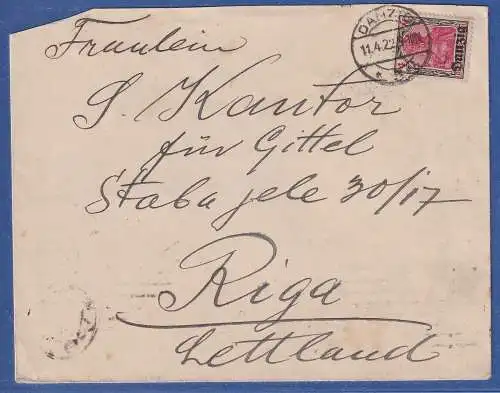 DANZIG
11.4.22
Danzig
Fräulein
S. Kantor
für Gittel
Staba jele 30/17
Riga
Lettland